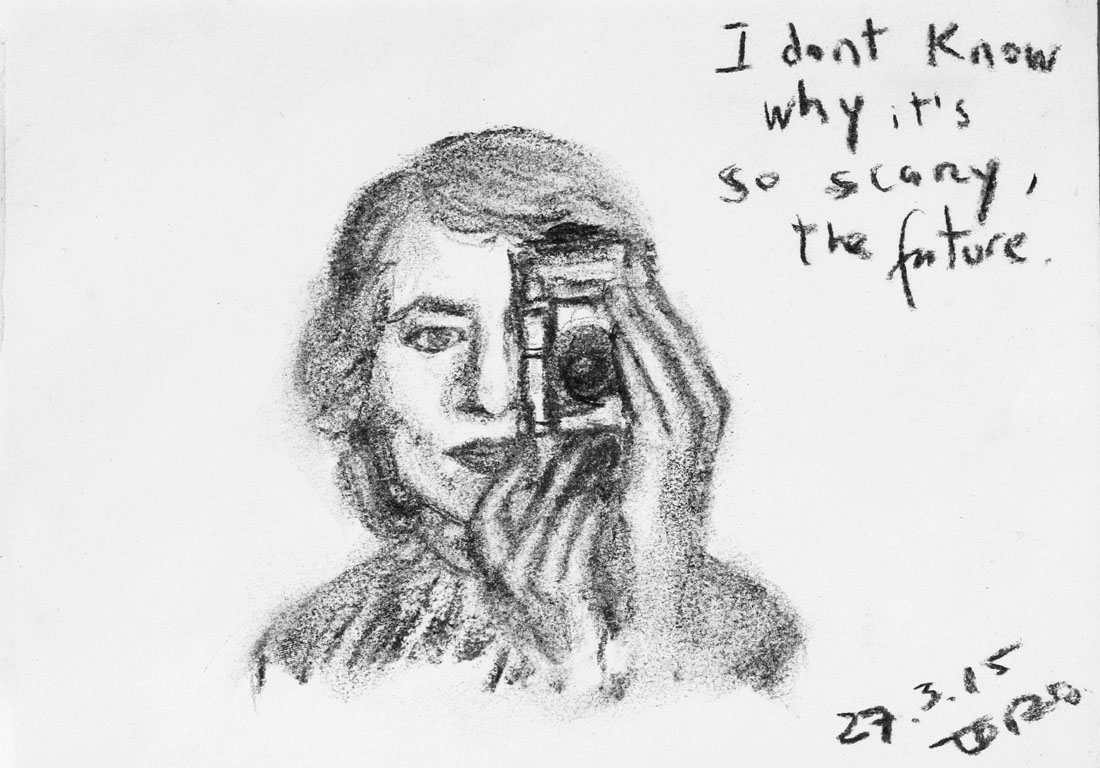 I dont Know
why it's
so scary,
the future.
27.3.15